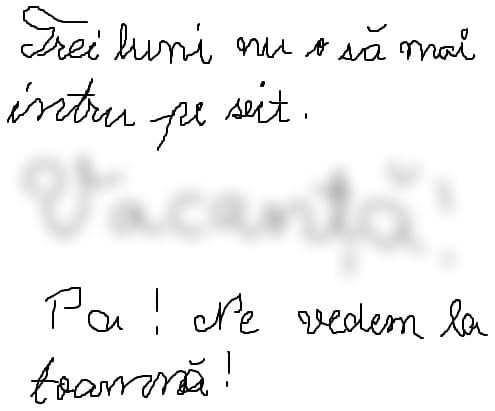 Trei luni nu o să mai
intru pe seit.
Vacanță!
Pa! Ne vedem la
toamnă!